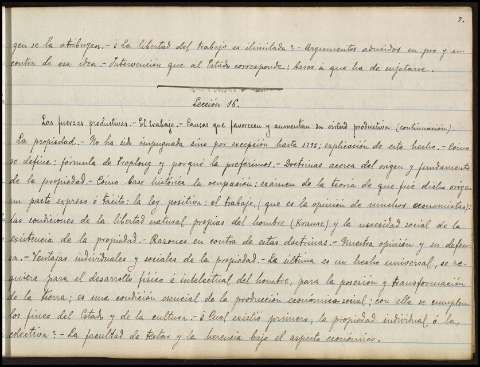 7.
gen se la atribuyen. - ¿La libertad del trabajo es ilimitada? - Argumentos aducidos en pro y en
contra de esa idea. - Intervención que al Estado corresponde: bases á que ha de sujetarse.
Lección 16.
Las fuerzas productivas. - El trabajo. - Causas que favorecen y aumentan su virtud productiva (continuación)
La propiedad. - No ha sido impugnada sino por excepción hasta explicación de este hecho. - Cómo
se define: fórmula de Troplong y porqué la preferimos. - Doctrinas acerca del origen y fundamento
de la propiedad. - Como base histórica la ocupación; examen de la teoría de que fué dicho origen
un pacto expreso ó tácito: la ley positiva: el trabajo, (que es la opinión de muchos economistas):
las condiciones de la libertad natural propias del hombre (Krause) y la necesidad social de la
existencia de la propiedad. - Razones en contra de estas doctrinas. - Nuestra opinión y su defen-
sa. - Ventajas individuales y sociales de la propiedad. - La última es un hecho universal, se re-
quiere para el desarrollo físico é intelectual del hombre, para la posesión y transformación
de la tierra; es una condición esencial de la producción económico-social; con ella se cumplen
los fines del Estado y de la cultura. - ¿Cual existió primero, la propiedad individual ó la
colectiva? - La facultad de testar y la herencia bajo el aspecto económico.